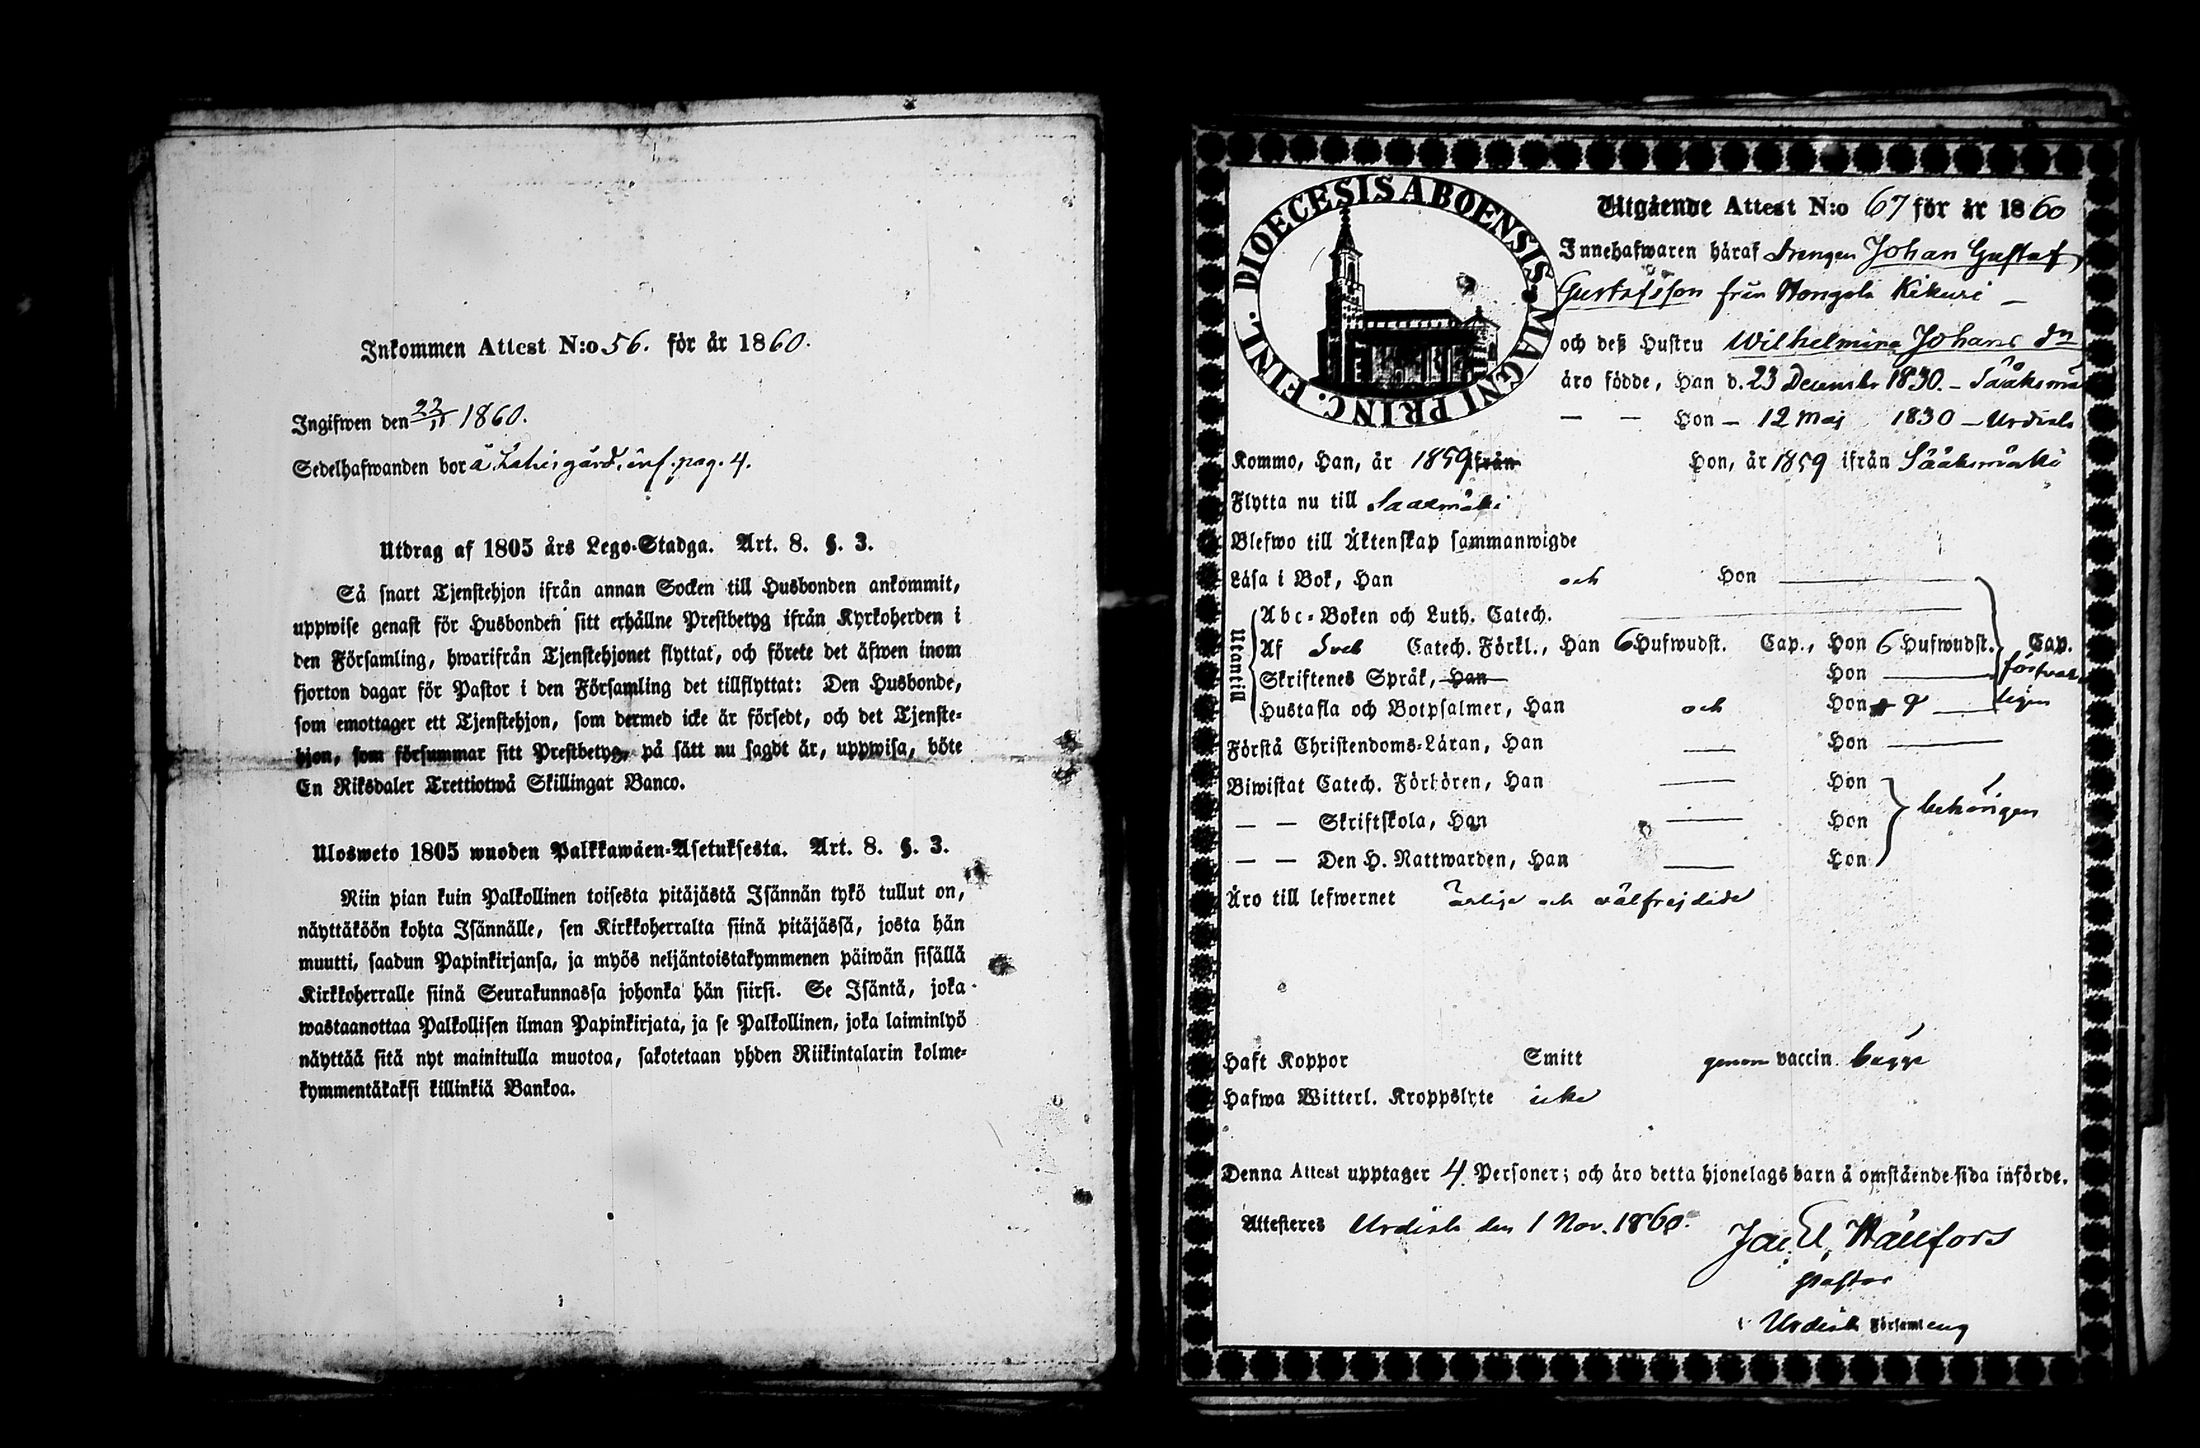 Inkommen Attest N:o 56. för år 1860.
Ingifwen den 22/11 1860.
Sedelhafwanden bor å gård, inf. pag. 4.
Utdrag af 1805 års Lego-Stadga. Art. 8. §. 3.
Så snart Tjenstehjon ifrån annan Socken till Husbonden ankommit,
uppwise genast för Husbonden sitt erhållne Prestbetyg ifrån Kyrkoherden i
den Församling, hwarifrån Tjenstehjonet flyttat, och förete det äfwen inom
fjorton dagar för Pastor i den Församling det tillflyttat: Den Husbonde,
som emottager ett Tjenstehjon, som dermed icke är försedt, och det Tjenste-
hjon, som försummar sitt Prestbetyg, på sätt nu sagdt är, uppwisa, böte
En Riksdaler Trettiotwå Skillingar Banco.
Ulosweto 1805 wuoden Palkkawäen-Asetuksesta. Art. 8. §. 3.
Niin pian kuin Palkollinen toisesta pitäjästä Isännän tykö tullut on,
näyttäköön kohta Isännälle, sen Kirkkoherralta siinä pitäjässä, josta hän
muutti, saadun Papinkirjansa, ja myös neljäntoistakymmenen päiwän sisällä
Kirkkoherralle siinä Seurakunnassa johonka hän siirsi. Se Isäntä, joka
wastaanottaa Palkollisen ilman Papinkirjata, ja se Palkollinen, joka laiminlyö
näyttää sitä nyt mainitulla muotoa, sakotetaan yhden Riikintalarin kolme-
kymmentäkaksi killinkiä Bankoa.
DIOECESIS ABOENSIS MAGNI PRINC. FINL.
Utgående Attest N:o 67 för år 1860
Innehafwaren häraf drengen Johan Gustaf
Gustafsson från Hongola Kikuri
och deß Hustru Wilhelmina Johans dn
äro födde, Han d. 23 December 1830. – Sääksmä
— — Hon – 12 Maj 1830 – Urdiala
Kommo, Han, år 1859 ifrån Hon, år 1859 ifrån Sääksmäki
Flytta nu till Saaxmäki
Blefwo till Äktenskap sammanwigde
Läsa i Bok, Han och Hon
Utantill
Abc-Boken och Luth. Catech.
Af Sveb Catech. Förkl., Han 6 Hufwudst. Cap., Hon 6 Hufwudst. Cap.
Skriftenes Språk, Han Hon
Hustafla och Botpsalmer, Han och Hon
Förstå Christendoms-Läran, Han Hon
Biwistat Catech. Förhören, Han Hon
— — Skriftskola, Han Hon behörigen
— — Den H. Nattwarden, Han Hon
Äro till lefwernet ärlige och välfrejdade
Haft Koppor Smitt genom vaccin begge
Hafwa Witterl. Kroppslyte icke
Denna Attest upptager 4 Personer; och äro detta hjonelags barn å omstående sida införde.
Attesteres Urdiala den 1 Nov. 1860.
Pastor
i Urdiala Församling